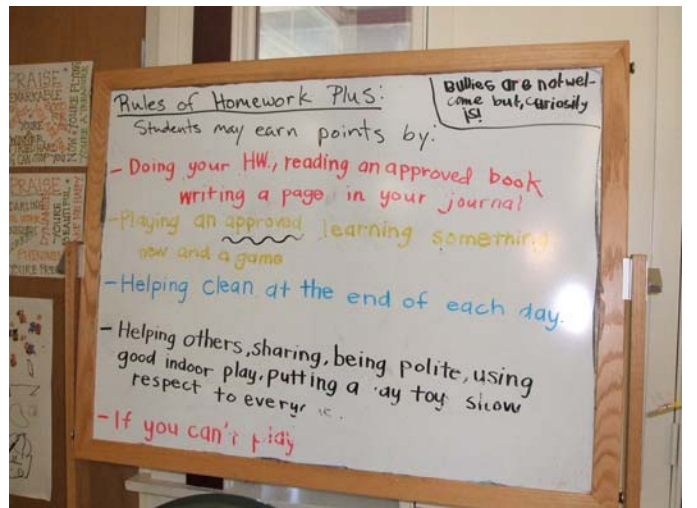 Rules of Homework Plus:
Bullies are not wel-
come but, curiosily
is!
Students may earn points by:
- Doing your HW., reading an approved book
writing a page in your journal
- Playing an approved learning something
now and a game
- Helping clean at the end of each day.
- Helping others, sharing, being polite, using
good indoor play, putting a ay toy show
respect to
- If you can't
PRAISE
YOU'RE
NOW YOU'RE FLYING
YOU'RE A TREASURE
PRAISE